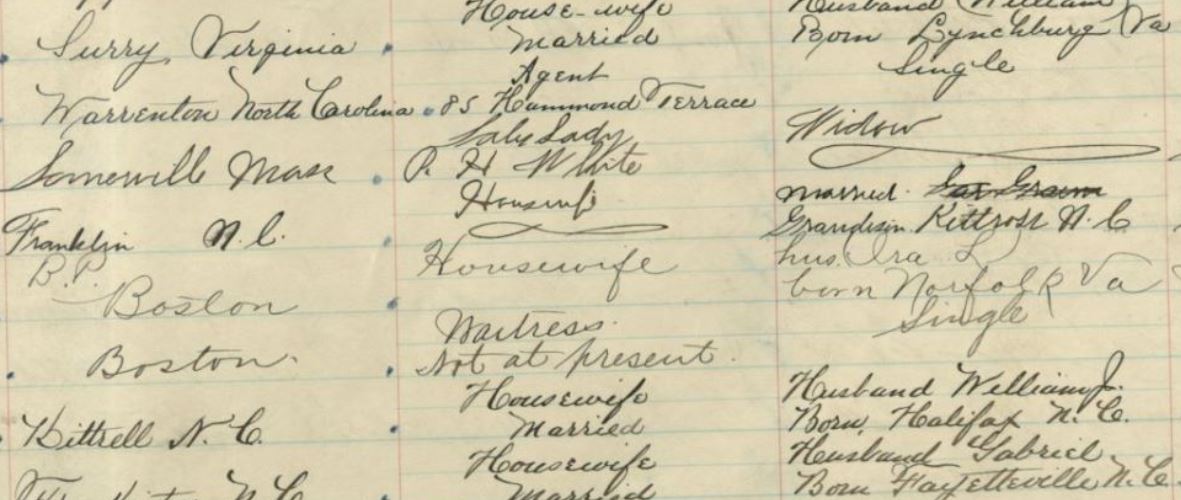 House-wife Husband William
Surry, Virginia Married Born Lynchburg Va
Agent Single
Warrenton North Carolina 85 Hammond Terrace
Saleslady Widow
Somerville Mass P. H. White
Housewife Married.
Franklin N.C. Grandison Kittrell N.C.
B.P. Housewife hus. Ira L
Boston born Norfolk Va
Waitress Single
Boston. Not at present.
Housewife Husband William J.
Kittrell N.C. Married Born, Halifax N.C.
Housewife Husband Gabriel
N.C. Married Born Fayetteville N.C.